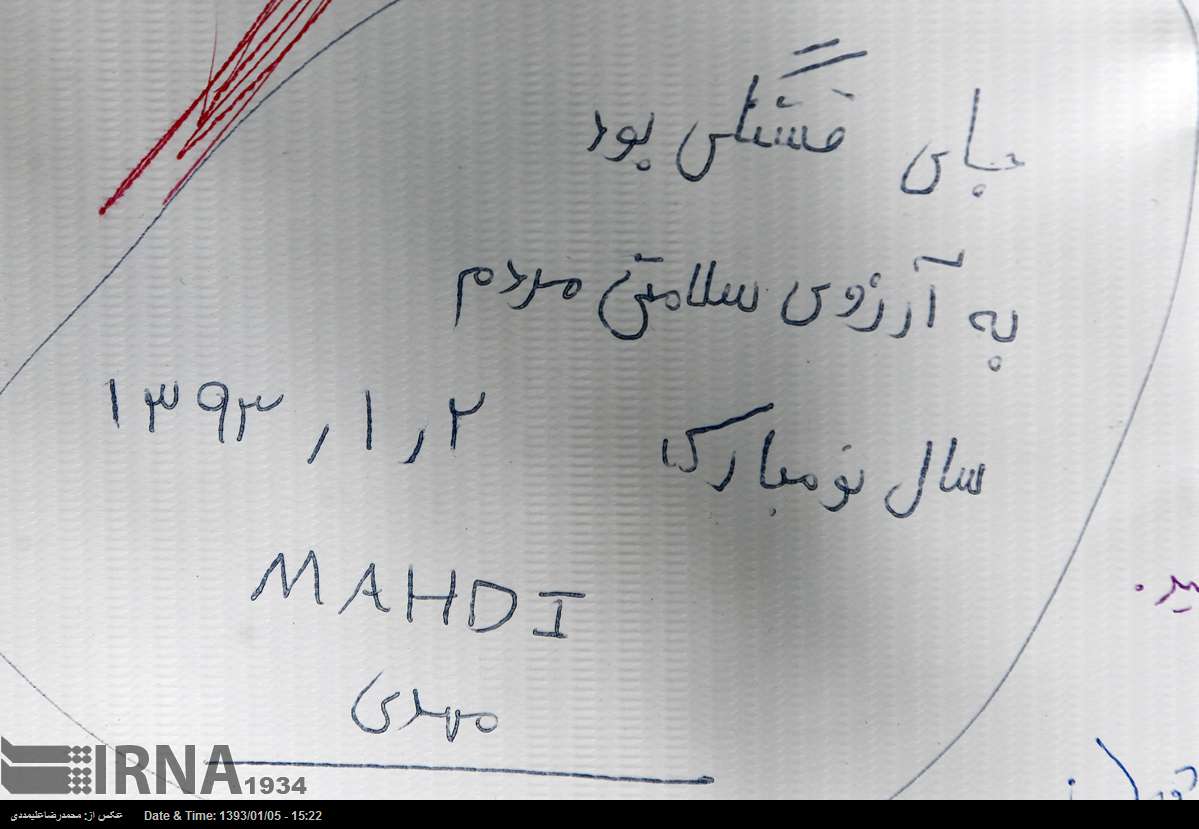 جای قشنگی بود
به آرزوی سلامتی مردم
سال نو مبارک
۲ ر ۱ ر ۱۳۹۳
MAHDI
مهدی
IRNA 1934
عکس از: محمدرضاعلیمددی Date & Time: 1393/01/05 - 15:22